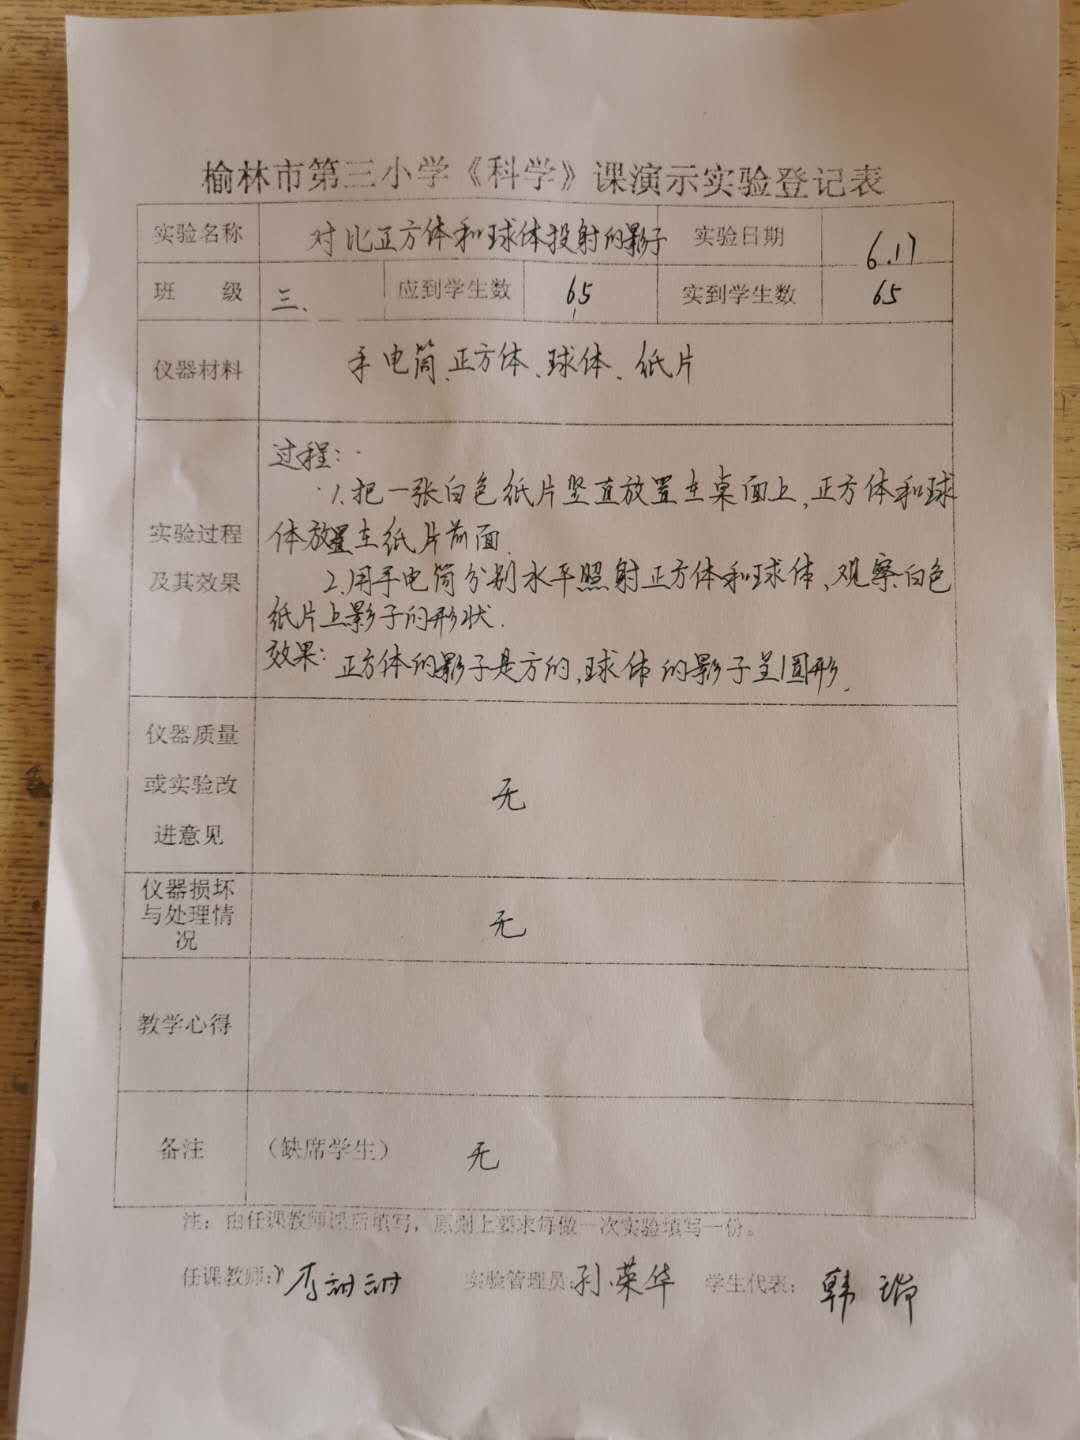 榆林市第三小学《科学》课演示实验登记表
实验名称 对比正方体和球体投射的影子 实验日期 6.17
班 级 三、 应到学生数 65 实到学生数 65
仪器材料 手电筒、正方体、球体、纸片
过程:
1.把一张白色纸片竖直放置在桌面上,正方体和球
实验过程 体放置在纸片前面.
及其效果 2.用手电筒分别水平照射正方体和球体,观察白色
纸片上影子的形状.
效果:正方体的影子是方的,球体的影子呈圆形.
仪器质量
或实验改 无
进意见
仪器损坏
与处理情 无
况
教学心得
备注 (缺席学生) 无
注:由任课教师课后填写,原则上要求每做一次实验填写一份。
任课教师: 实验管理员:孙荣华 学生代表:韩